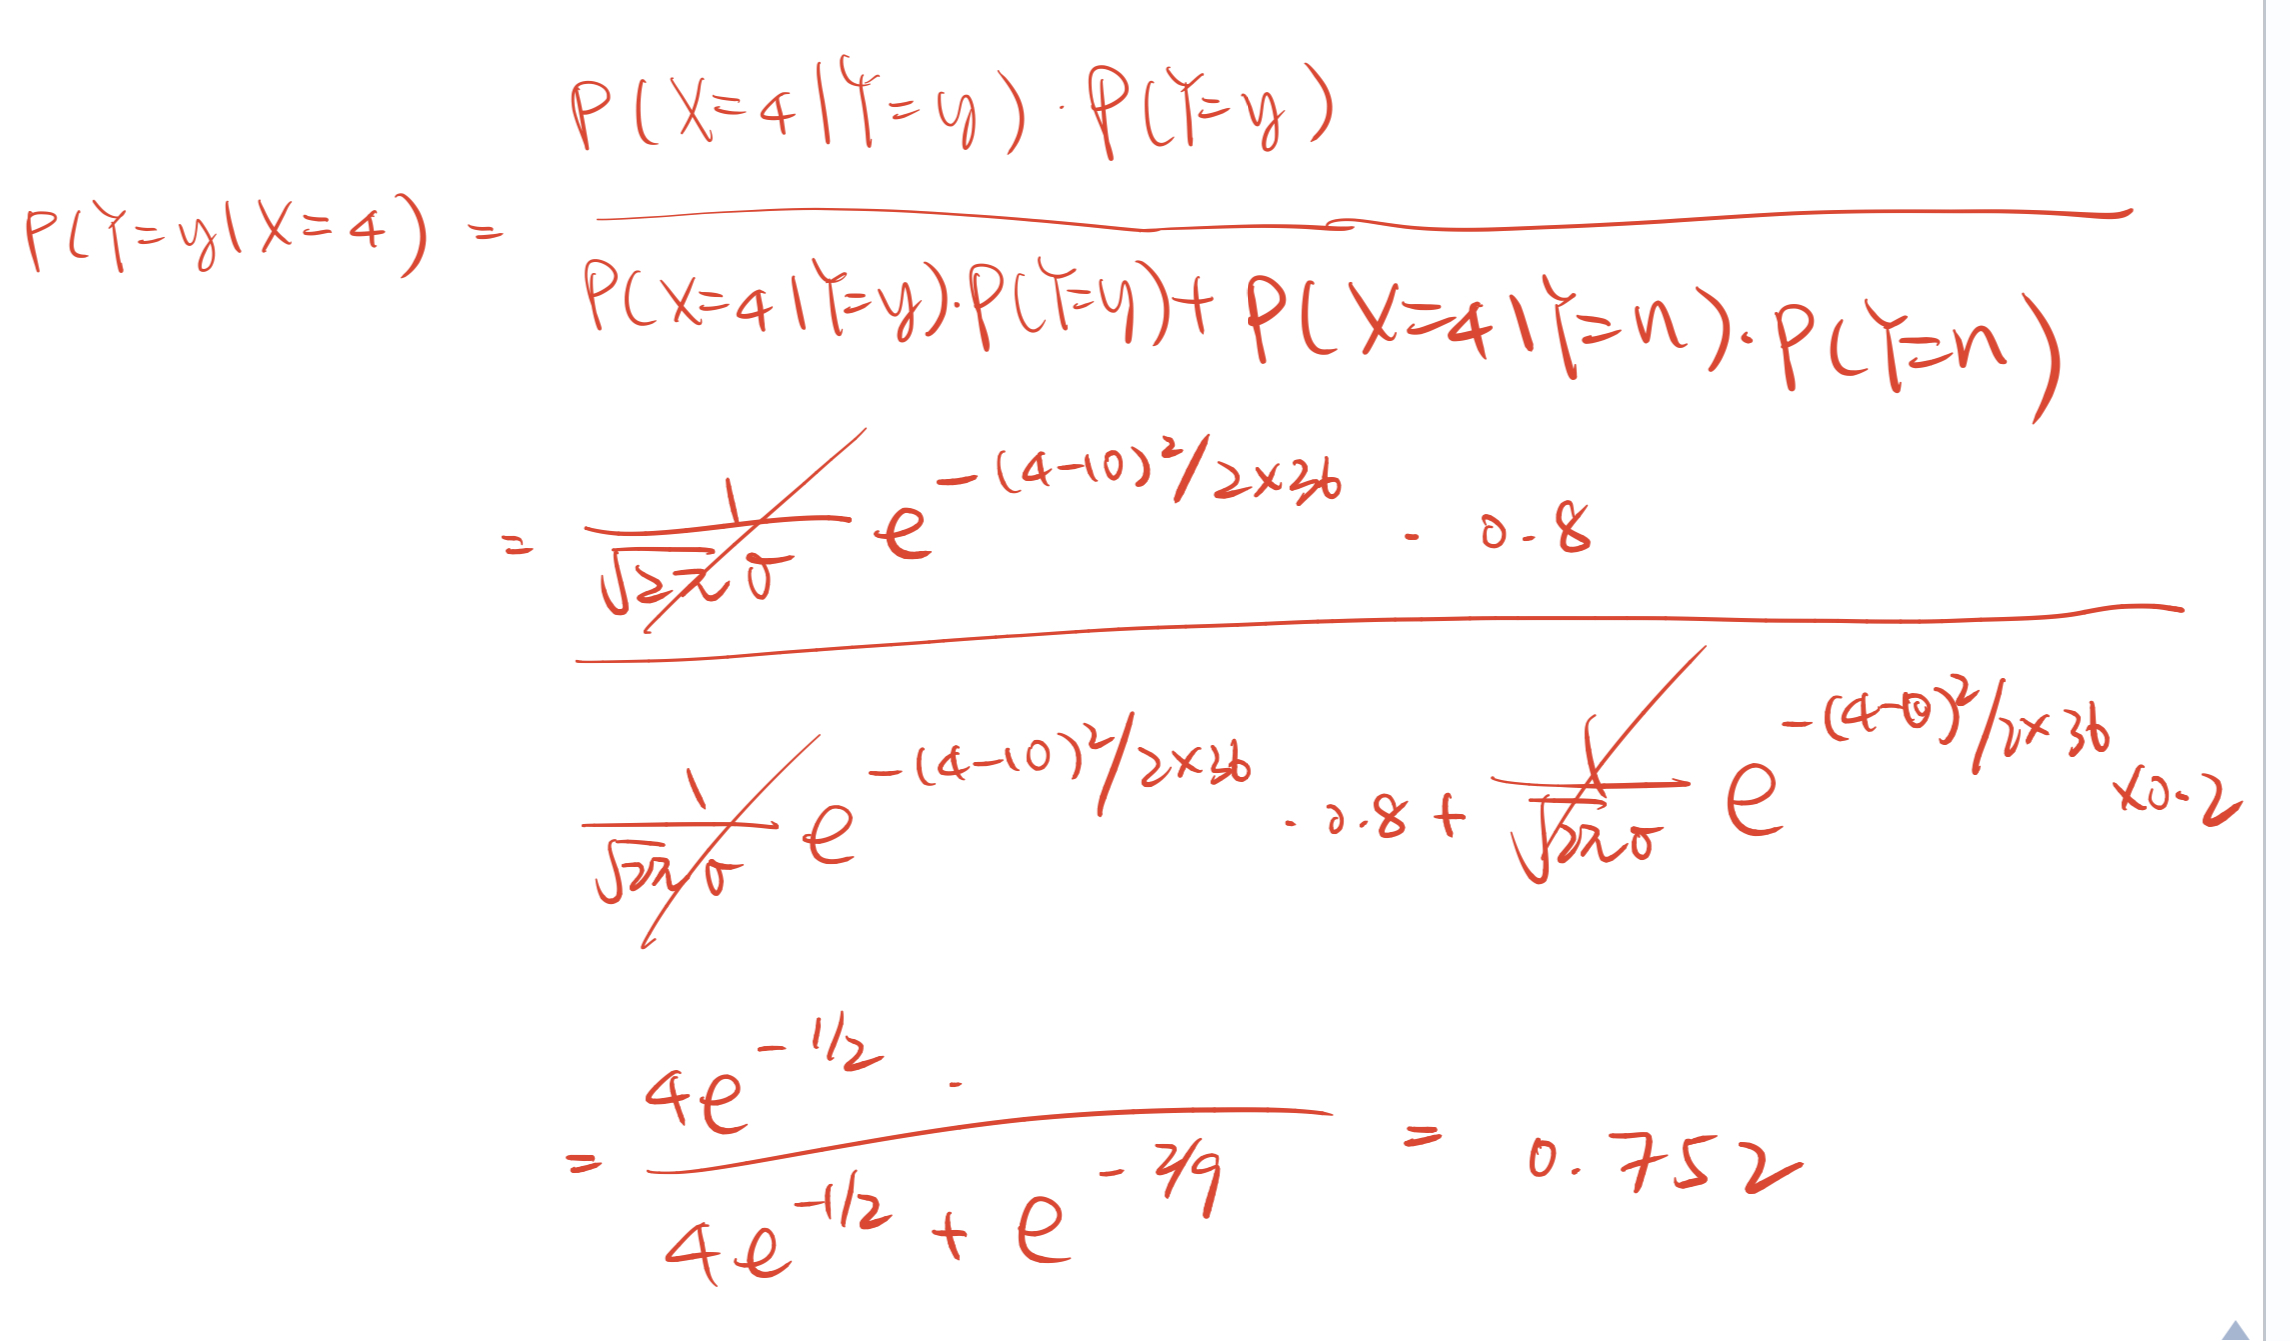 P(X=4|Y=y)·P(Y=y)
P(Y=y|X=4) =
P(X=4|Y=y)·P(Y=y)+P(X=4|Y=n)·P(Y=n)
= 1/√2π σ e^-(4-10)²/2×36 · 0.8
1/√2π σ e^-(4-10)²/2×36 · 0.8 + 1/√2π σ e^-(4-0)²/2×36 ×0.2
4e^-1/2 ·
= = 0.752
4e^-1/2 + e^-2/9